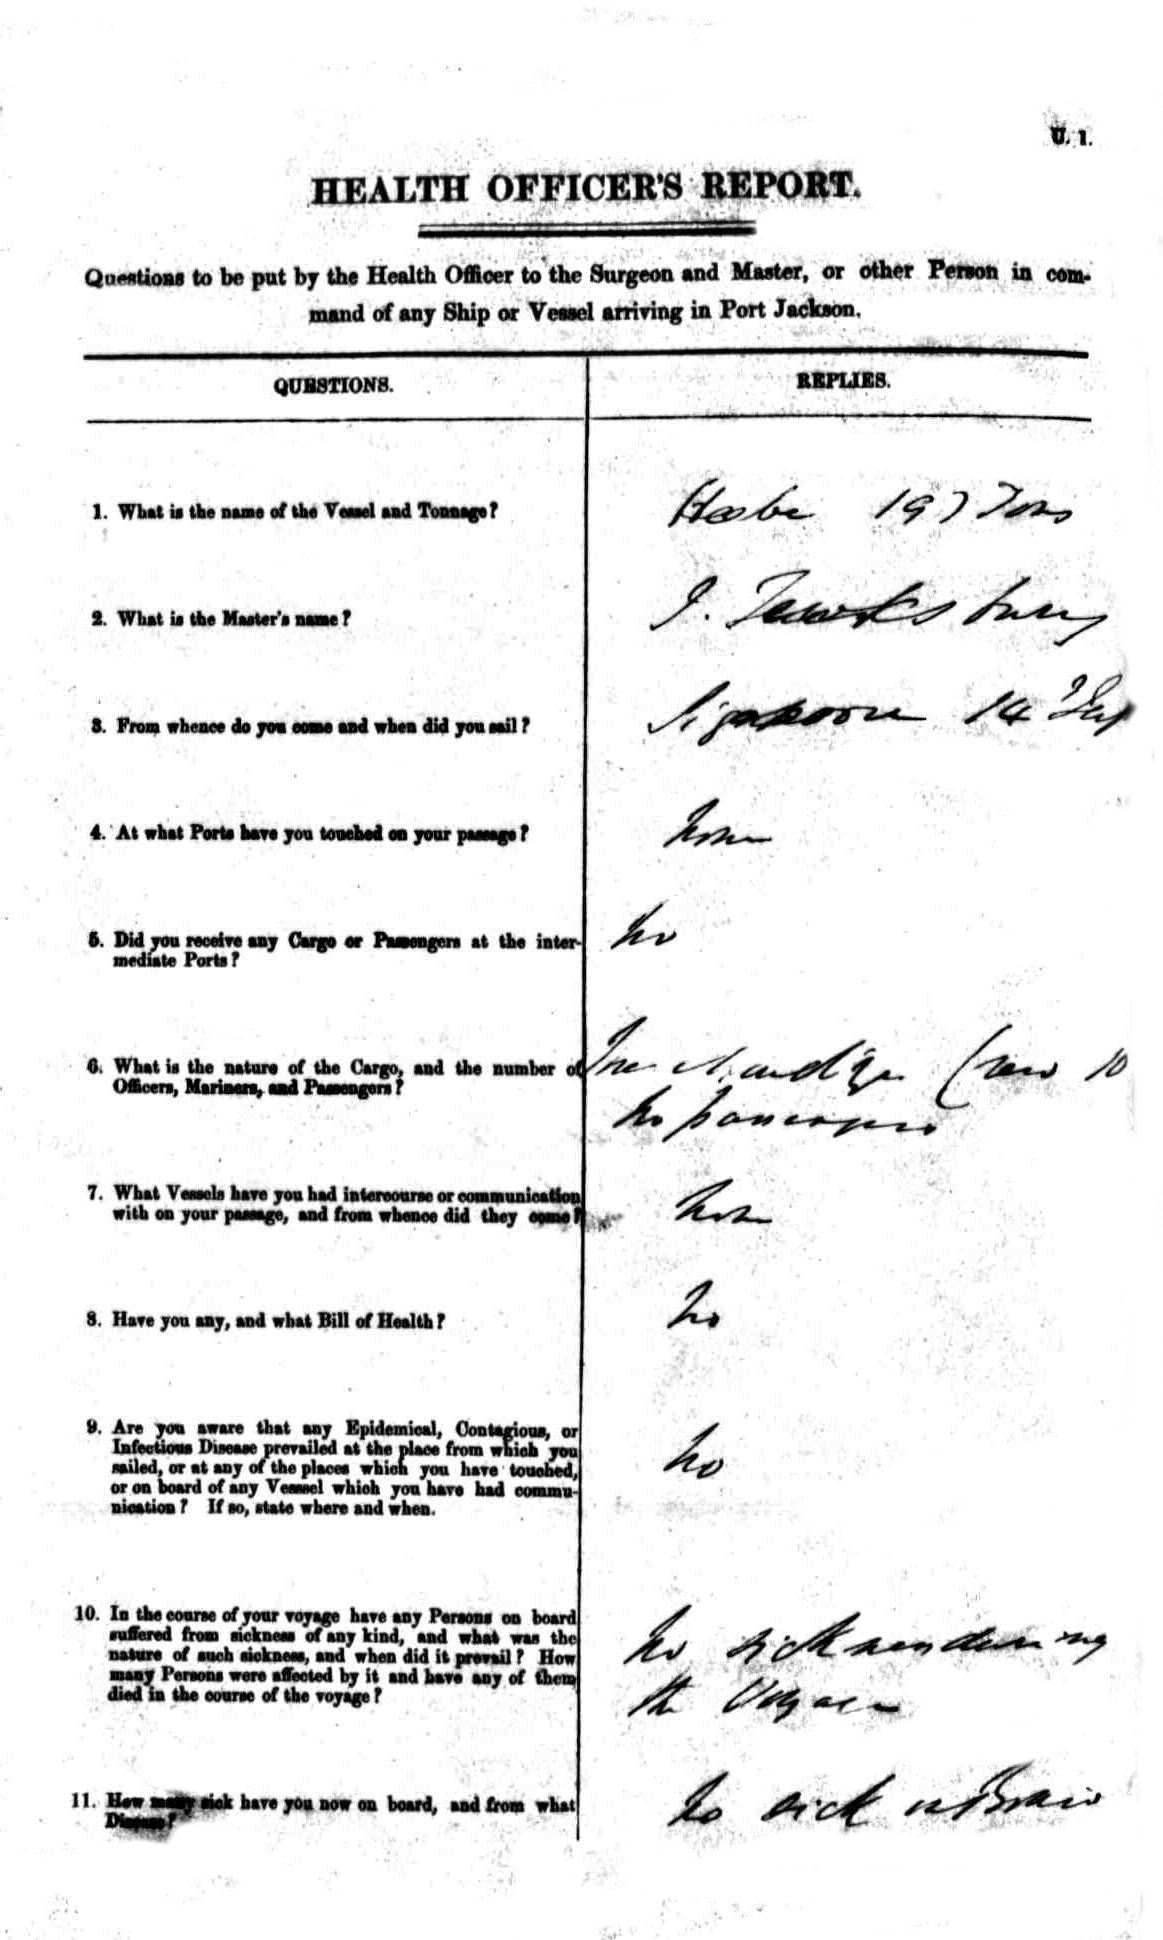 U. 1.
HEALTH OFFICER'S REPORT.
Questions to be put by the Health Officer to the Surgeon and Master, or other Person in com-
mand of any Ship or Vessel arriving in Port Jackson.
QUESTIONS.
REPLIES.
1. What is the name of the Vessel and Tonnage?
197 Tons
2. What is the Master's name?
J. Tewksbury
3. From whence do you come and when did you sail?
14
4. At what Ports have you touched on your passage?
None
5. Did you receive any Cargo or Passengers at the inter-
mediate Ports?
No
6. What is the nature of the Cargo, and the number of
Officers, Mariners, and Passengers?
Crew 10
No passengers
7. What Vessels have you had intercourse or communication
with on your passage, and from whence did they come?
None
8. Have you any, and what Bill of Health?
No
9. Are you aware that any Epidemical, Contagious, or
Infectious Disease prevailed at the place from which you
sailed, or at any of the places which you have touched,
or on board of any Vessel which you have had commu-
nication? If so, state where and when.
No
10. In the course of your voyage have any Persons on board
suffered from sickness of any kind, and what was the
nature of such sickness, and when did it prevail? How
many Persons were affected by it and have any of them
died in the course of the voyage?
No sickness during
the Voyage
11. How many sick have you now on board, and from what
Disease?
No sick